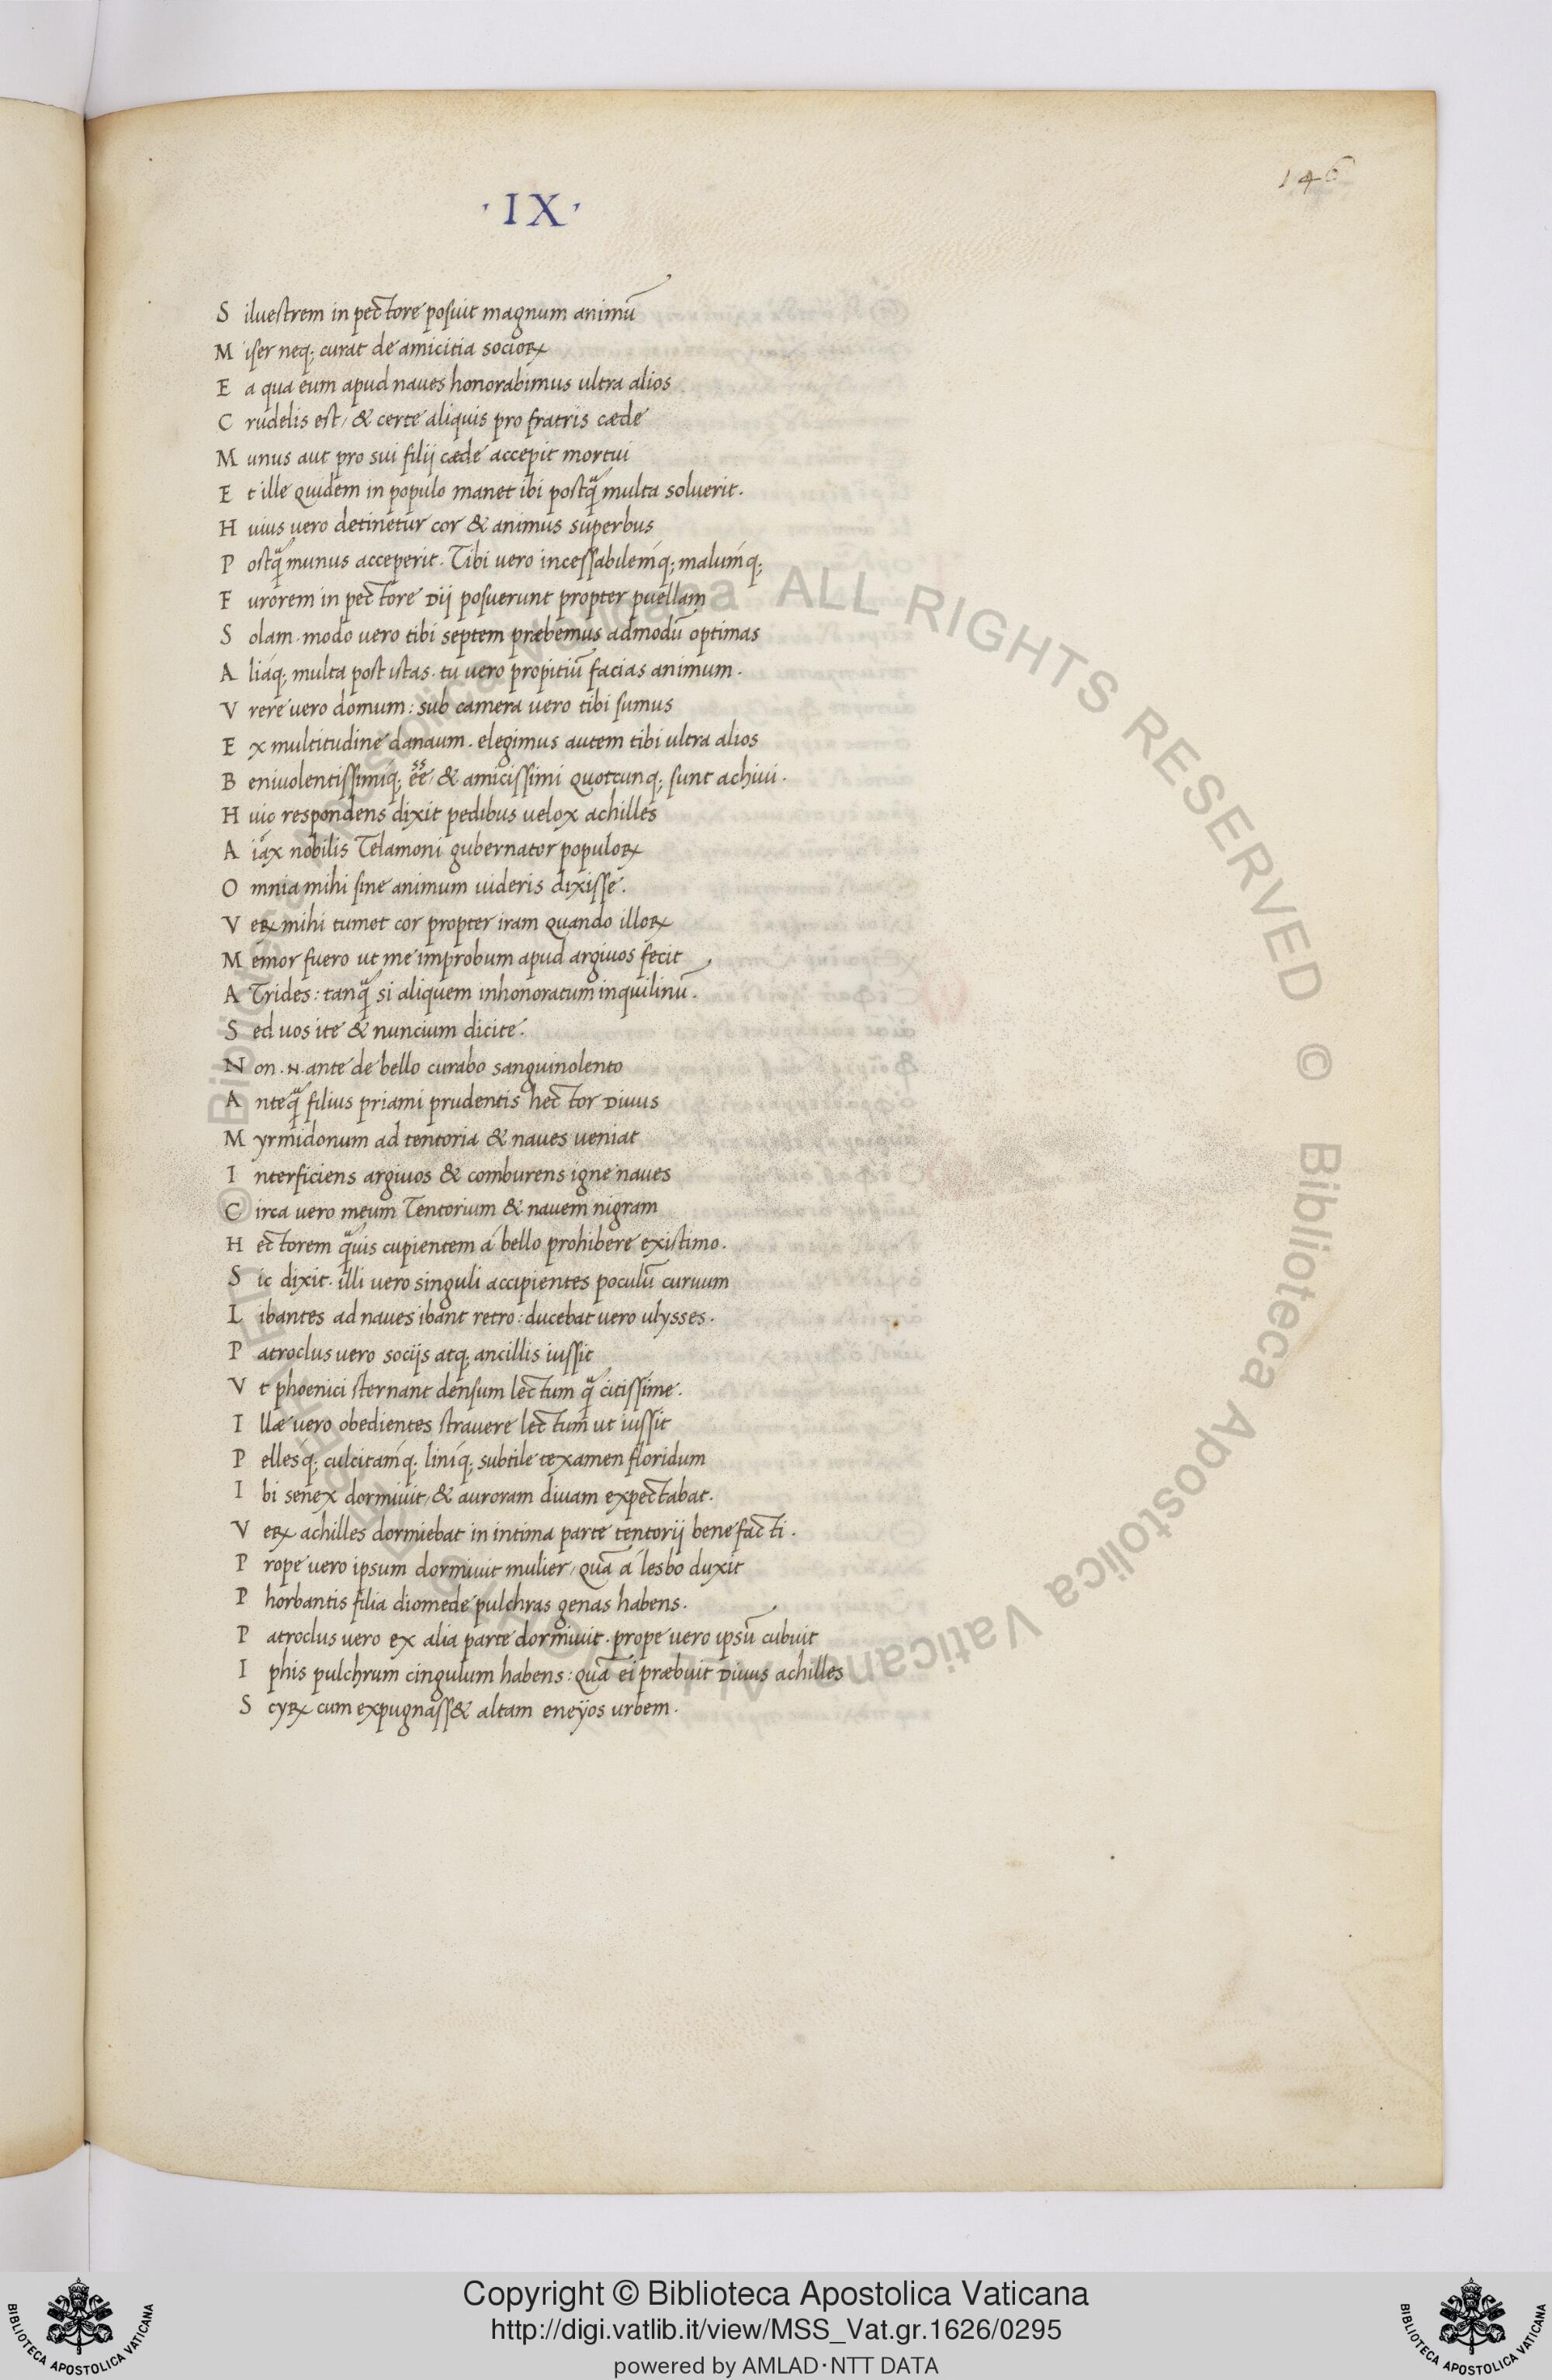 146
· IX ·
S iluestrem in pectore posuit magnum animū
M iser neq; curat de amicitia socioꝝ
E a qua eum apud naues honorabimus ultra alios
C rudelis est, & certe aliquis pro fratris cæde
M unus aut pro sui filij cæde accepit mortui
E t ille quidem in populo manet ibi postqͣ multa soluerit.
H uius uero detinetur cor & animus superbus
P ostqͣ munus acceperit. Tibi uero incessabilemq; malumq;
F urorem in pectore Dij posuerunt propter puellam
S olam. modo uero tibi septem præbemus admodū optimas
A liaq; multa post istas. tu uero propitiū facias animum.
V rere uero domum: sub camera uero tibi sumus
E x multitudine danaum. elegimus autem tibi ultra alios
B eniuolentissimiq; ēē, & amicissimi quotcunq; sunt achiui.
H uic respondens dixit pedibus uelox achilles
A iax nobilis Telamoni gubernator populoꝝ
O mnia mihi sine animum uideris dixisse.
V eꝝ mihi tumet cor propter iram quando illoꝝ
M emor fuero ut me improbum apud argiuos fecit
A Trides: tanqͣ si aliquem inhonoratum inquilinū.
S ed uos ite & nuncium dicite.
N on .N. ante de bello curabo sanguinolento
A nteqͣ filius priami prudentis hector Diuus
M yrmidonum ad tentoria & naues ueniat
I nterficiens argiuos & comburens igne naues
C irca uero meum Tentorium & nauem nigram
H ectorem qͣuis cupientem á bello prohibere existimo.
S ic dixit. illi uero singuli accipientes poculū curuum
L ibantes ad naues ibant retro: ducebat uero ulysses.
P atroclus uero socijs atq; ancillis iussit
V t phoenici sternant densum lectum qͣ citissime.
I llæ uero obedientes strauere lectum ut iussit
P ellesq; culcitamq; liniq; subtile texamen floridum
I bi senex dormiuit, & auroram diuam expectabat.
V eꝝ achilles dormiebat in intima parte tentorij bene facti.
P rope uero ipsum dormiuit mulier, quā á lesbo duxit
P horbantis filia diomede pulchras genas habens.
P atroclus uero ex alia parte dormiuit. prope uero ipsū cubuit
I phis pulchrum cingulum habens: quā ei præbuit Diuus achilles
S cyꝝ cum expugnass& altam eneÿos urbem.
© Biblioteca Apostolica Vaticana ALL RIGHTS RESERVED © Biblioteca Apostolica Vaticana ALL RIGHTS RESERVED
Copyright © Biblioteca Apostolica Vaticana
http://digi.vatlib.it/view/MSS_Vat.gr.1626/0295
powered by AMLAD·NTT DATA
BIBLIOTECA APOSTOLICA VATICANA
BIBLIOTECA APOSTOLICA VATICANA